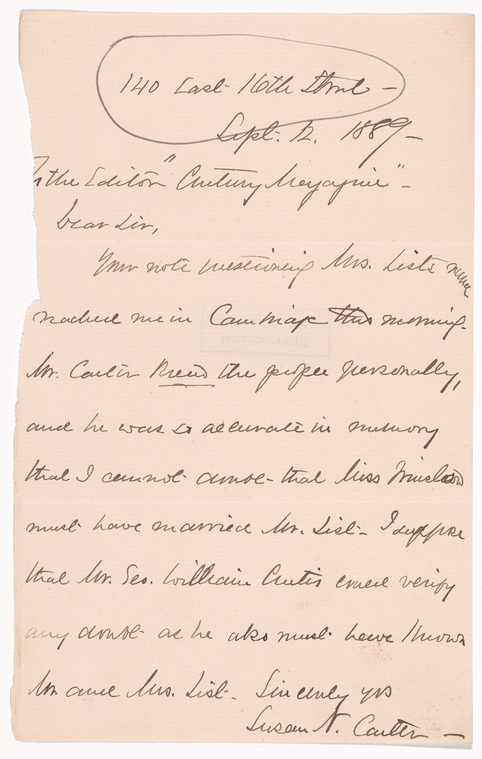 140 East 16th Street -
Sept. 12. 1889 -
To the Editor "Century Magazine" -
Dear Sir,
Your note questioning Mrs. List's name
reached me in Cambridge this morning.
Mr. Carter knew the people personally,
and he was so accurate in memory
that I cannot doubt that Miss
must have married Mr. List - I suppose
that Mr. Geo. William Curtis could verify
any doubt as he also must have known
Mr and Mrs. List. Sincerely yrs
Susan N. Carter -